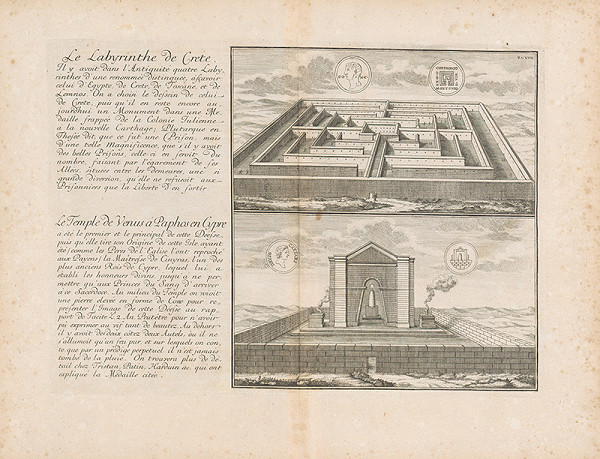 Le Labyrinthe de Crete.
Il y avoit dans l'Antiquité quatre Laby
rinthes d'une renommée distinguée, a sçavoir
celui d'Egypte, de Crete, de Toscane, et de
Lemnos. On a choisi le dessein de celui
de Crete, puis qu'il en reste encore au
jourdhui un Monument dans une Me
daille frappée de la Colonie Julienne
a la nouvelle Carthage; Plutarque en
Thesée dit, que ce fut une Prison, mais
d'une telle Magnificence, que s'il y avoit
des belles Prisons, celle-ci en seroit du
nombre, faisant par l'égarement de ses
Allées, situées entre les demeures, une si
grande diversion, qu'elle ne refusoit aux
Prisonniers que la Liberté d'en sortir
Le Temple de Venus á Paphos en Cypre
a eté le premier et le principal de cette Deesse,
puis qu'elle tire son Origine de cette Isle, ayant
eté (comme les Peres de l'Eglise l'ont reproché
aux Payens) la Maitresse de Cinyras, l'un des
plus anciens Rois de Cypre, lequel lui a
etabli les honneurs divins, jusqu'a ne per
mettre qu'aux Princes du Sang d'arriver
a ce Sacerdoce. Au milieu du Temple on voioit
une pierre elevée en forme de Cone pour re
presenter l'Image de cette Deesse au rap
port de Tacite L 2 An. Peutetre pour n'avoir
pû exprimer au vif tant de beautez. Au dehors
il y avoit des deux cotez deux Autels, ou il ne
s'allumoit qu'un feu pur, et sur lesquels on con
te que par un prodige perpetuel il n'est jamais
tombé de la pluie. On trouvera plus de de
tail chez Tristan, Patin, Harduin &c. qui ont
expliqué la Medaille citée.